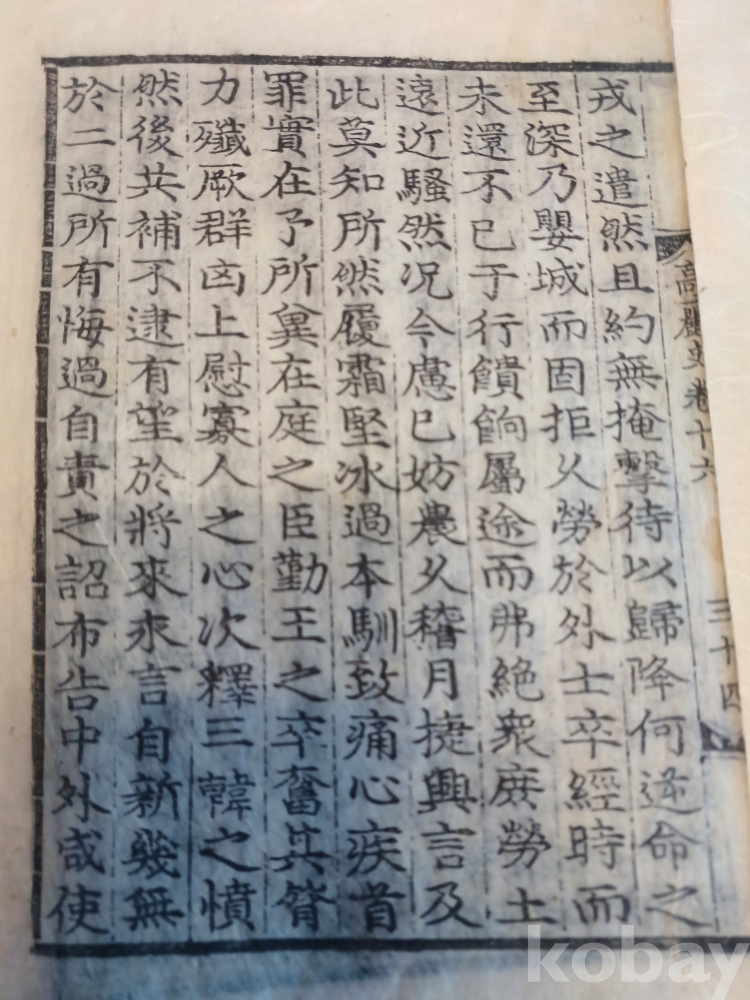 高麗史卷十六
三十四
戎之遣然且約無掩擊待以歸降何逆命之
至深乃嬰城而固拒久勞於外士卒經時而
未還不已于行饋餉屬途而弗絕衆庶勞土
遠近騷然況今慮已妨農久稽月捷興言及
此莫知所然履霜堅冰過本馴致痛心疾首
罪實在予所兾在庭之臣勤王之卒奮其膂
力殲厥群凶上慰寡人之心次釋三韓之憤
然後共補不逮有望於將來來言自新幾無
於二過所有悔過自責之詔布告中外咸使
kobay